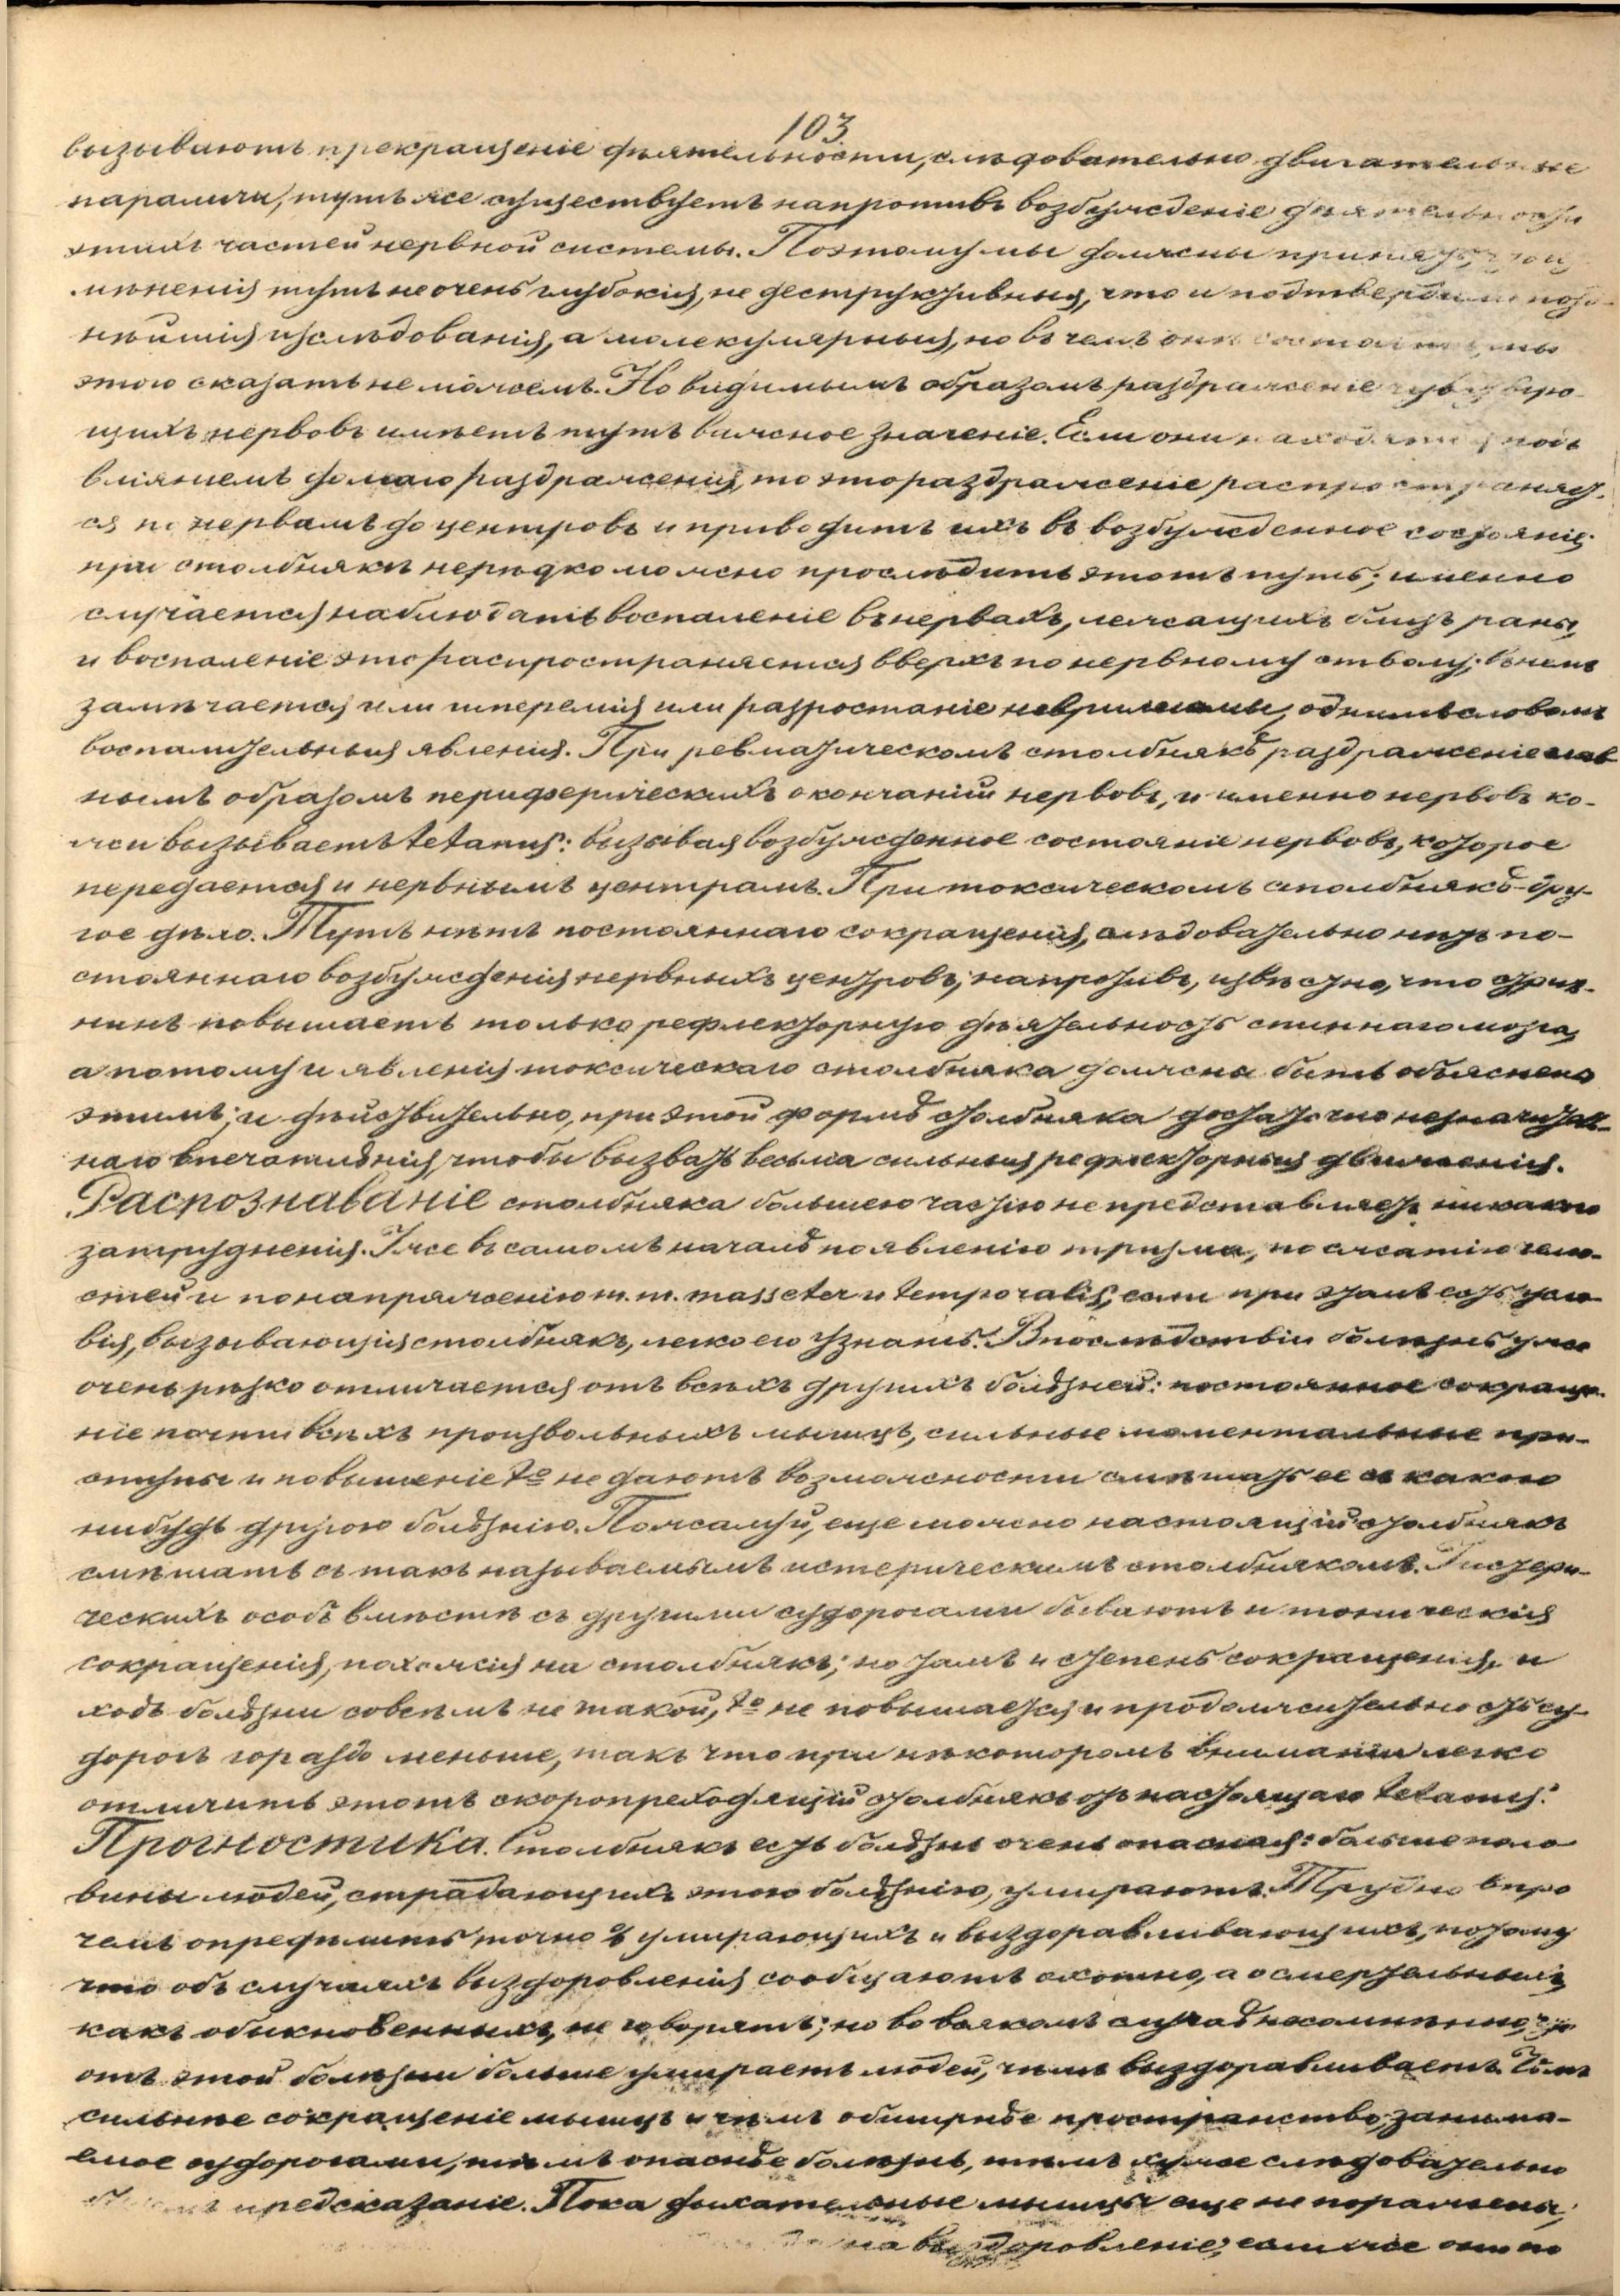 103
вызываютъ прекращеніе дѣятельности, слѣдовательно двигательные
параличи, тутъ же существуетъ напротивъ возбужденіе дѣятельности
этихъ частей нервной системы. Поэтому мы должны принять, что из
мѣненія тутъ не очень глубокія, не деструктивныя, что и подтвердили позд-
нѣйшія изслѣдованія, а молекулярныя, но въ чемъ они состоятъ, мы
этого сказать не можемъ. Но видимымъ образомъ раздраженіе чувствую-
щихъ нервовъ имѣетъ тутъ важное значеніе. Если они находятся подъ
вліяніемъ долгаго раздраженія, то это раздраженіе распространяет-
ся по нервамъ до центровъ и приводитъ ихъ въ возбужденное состояніе.
при столбнякѣ нерѣдко можно прослѣдить этотъ путь; именно
случается наблюдать воспаленіе въ нервахъ, лежащихъ близъ раны,
и воспаленіе это распространяется вверхъ по нервному стволу; въ немъ
замѣчается или гиперемія или разростаніе неврилеммы, однимъ словомъ
воспалительныя явленія. При ревматическомъ столбнякѣ раздраженіе глав
нымъ образомъ периферическихъ окончаній нервовъ, и именно нервовъ ко-
жи вызываетъ tetanus: вызывая возбужденное состояніе нервовъ, которое
передается и нервнымъ центрамъ. При токсическомъ столбнякѣ-дру-
гое дѣло. Тутъ нѣтъ постояннаго сокращенія, слѣдовательно нѣтъ по-
стояннаго возбужденія нервныхъ центровъ; напротивъ, извѣстно, что стрих-
нинъ повышаетъ только рефлекторную дѣятельность спиннаго мозга,
а потому и явленія токсическаго столбняка должна быть объяснена
этимъ; и дѣйствительно, при этой формѣ столбняка достаточно незначитель-
наго впечатлѣнія, чтобы вызвать весьма сильныя рефлекторныя движенія.
Распознаваніе столбняка большею частію не представляетъ никакого
затрудненія. Уже въ самомъ началѣ по явленію тризма, по сжатію челю-
стей и по напряженію m. m. masseter и temporalis, если при этомъ есть усло-
вія, вызывающія столбнякъ, легко его узнать. Впослѣдствіи болѣзнь уже
очень рѣзко отличается отъ всѣхъ другихъ болѣзней: постоянное сокраще-
ніе почти всѣхъ произвольныхъ мышцъ, сильные моментальные при-
ступы и повышеніе tº не даютъ возможности смѣшать ее съ какою
нибудь другою болѣзнію. Пожалуй, еще можно настоящій столбнякъ
смѣшать съ такъ называемымъ истерическимъ столбнякомъ. У истери-
ческихъ особъ вмѣстѣ съ другими судорогами бываютъ и тоническія
сокращенія, похожія на столбнякъ; но тамъ и степень сокращенія, и
ходъ болѣзни совсѣмъ не такой, tº не повышается и продолжительность су-
дорогъ гораздо меньше, такъ что при нѣкоторомъ вниманіи легко
отличить этотъ скоропреходящій столбнякъ отъ настоящаго tetanus.
Прогностика. Столбнякъ есть болѣзнь очень опасная: больше поло
вины людей, страдающихъ этою болѣзнію, умираютъ. Трудно впро
чемъ опредѣлить точно % умирающихъ и выздоравливающихъ, потому
что объ случаяхъ выздоровленія сообщаютъ охотно, а о смертельныхъ
какъ обыкновенныхъ, не говорятъ; но во всякомъ случаѣ несомнѣнно, что
отъ этой болѣзни больше умираетъ людей, чѣмъ выздоравливаетъ. Чѣмъ
сильнѣе сокращеніе мышцъ и чѣмъ обширнѣе пространство, занима-
емое судорогами, тѣмъ опаснѣе болѣзнь, тѣмъ хуже слѣдовательно
предсказаніе. Пока дыхательные мышцы еще не поражены,
на выздоровленіе; если же они по